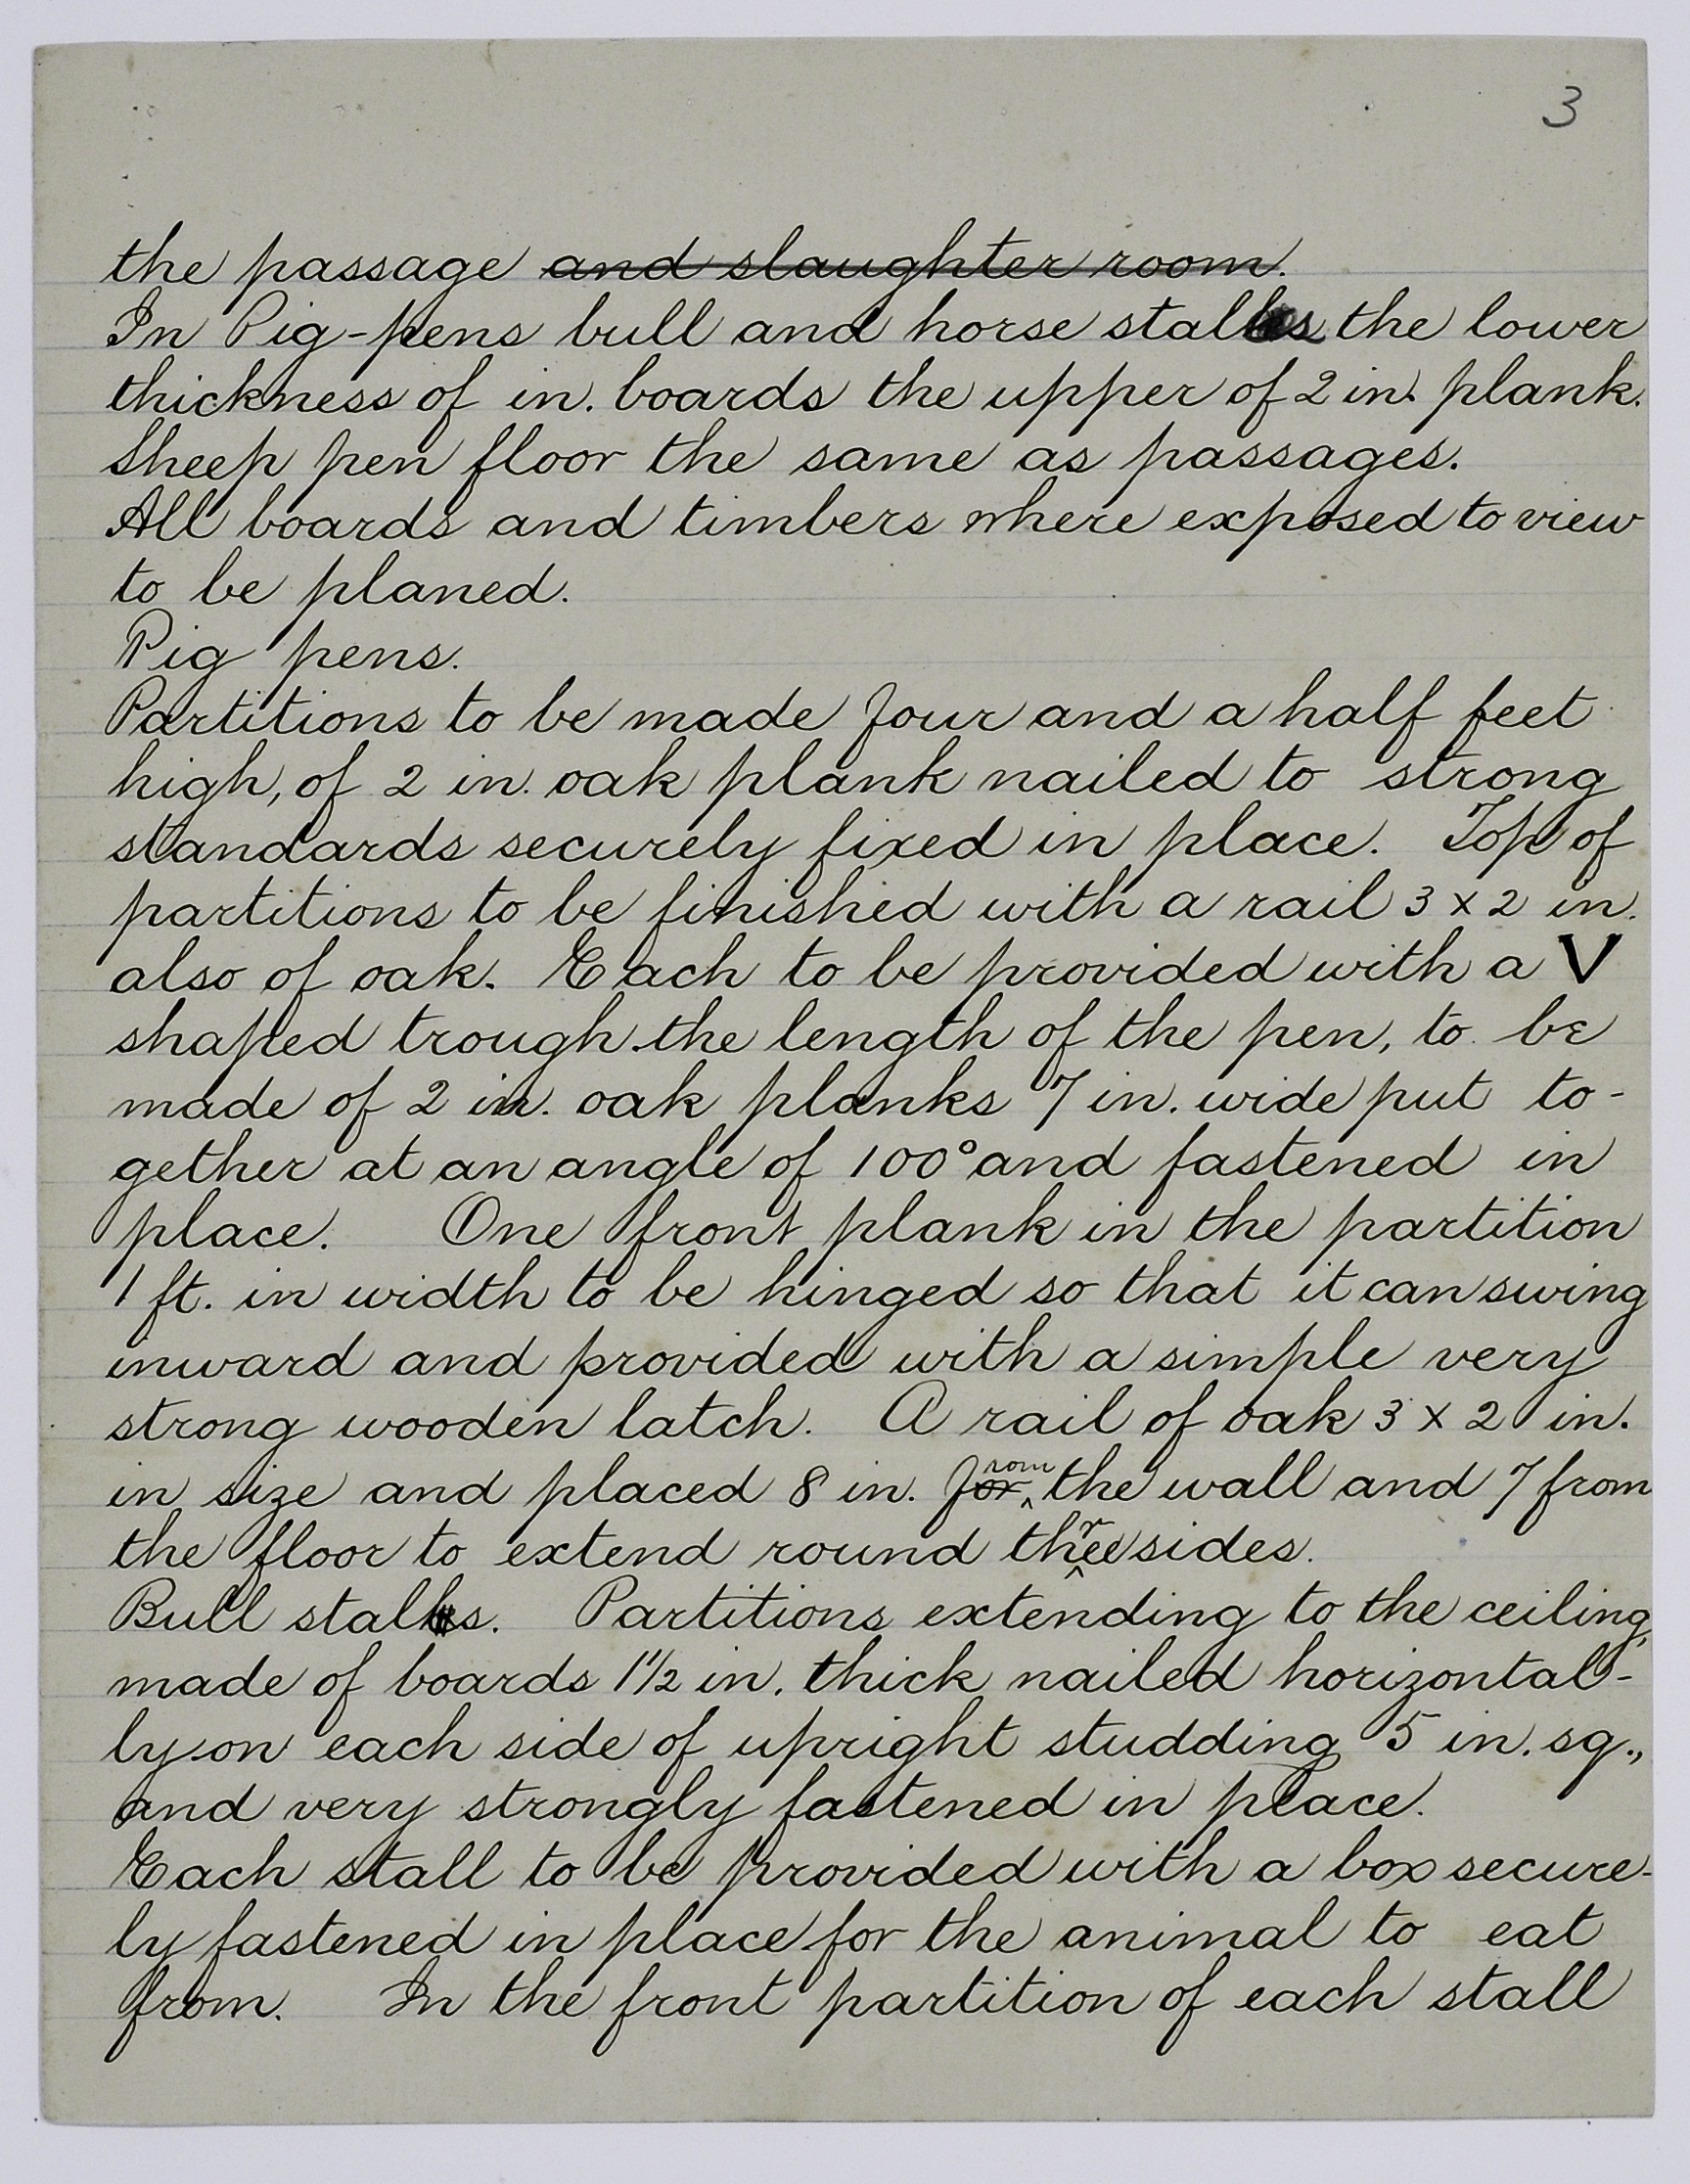 3
the passage and slaughter room.
In Pig-pens bull and horse stalls the lower
thickness of in. boards the upper of 2 in. plank.
Sheep pen floor the same as passages.
All boards and timbers where exposed to view
to be planed.
Pig pens.
Partitions to be made four and a half feet
high, of 2 in. oak plank nailed to strong
standards securely fixed in place. Top of
partitions to be finished with a rail 3 x 2 in.
also of oak. Each to be provided with a V
shaped trough the length of the pen, to be
made of 2 in. oak planks 7 in. wide put to-
gether at an angle of 100° and fastened in
place. One front plank in the partition
1 ft. in width to be hinged so that it can swing
inward and provided with a simple very
strong wooden latch. A rail of oak 3 x 2 in.
in size and placed 8 in. from the wall and 7 from
the floor to extend round three sides.
Bull stalls. Partitions extending to the ceiling,
made of boards 1 1/2 in. thick nailed horizontal-
ly on each side of upright studding 5 in. sq.,
and very strongly fastened in place.
Each stall to be provided with a box secure-
ly fastened in place for the animal to eat
from. In the front partition of each stall